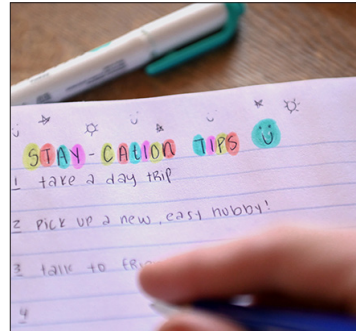 STAY-CATION TIPS
1 take a day trip
2 pick up a new, easy hobby!
3 talk to
4